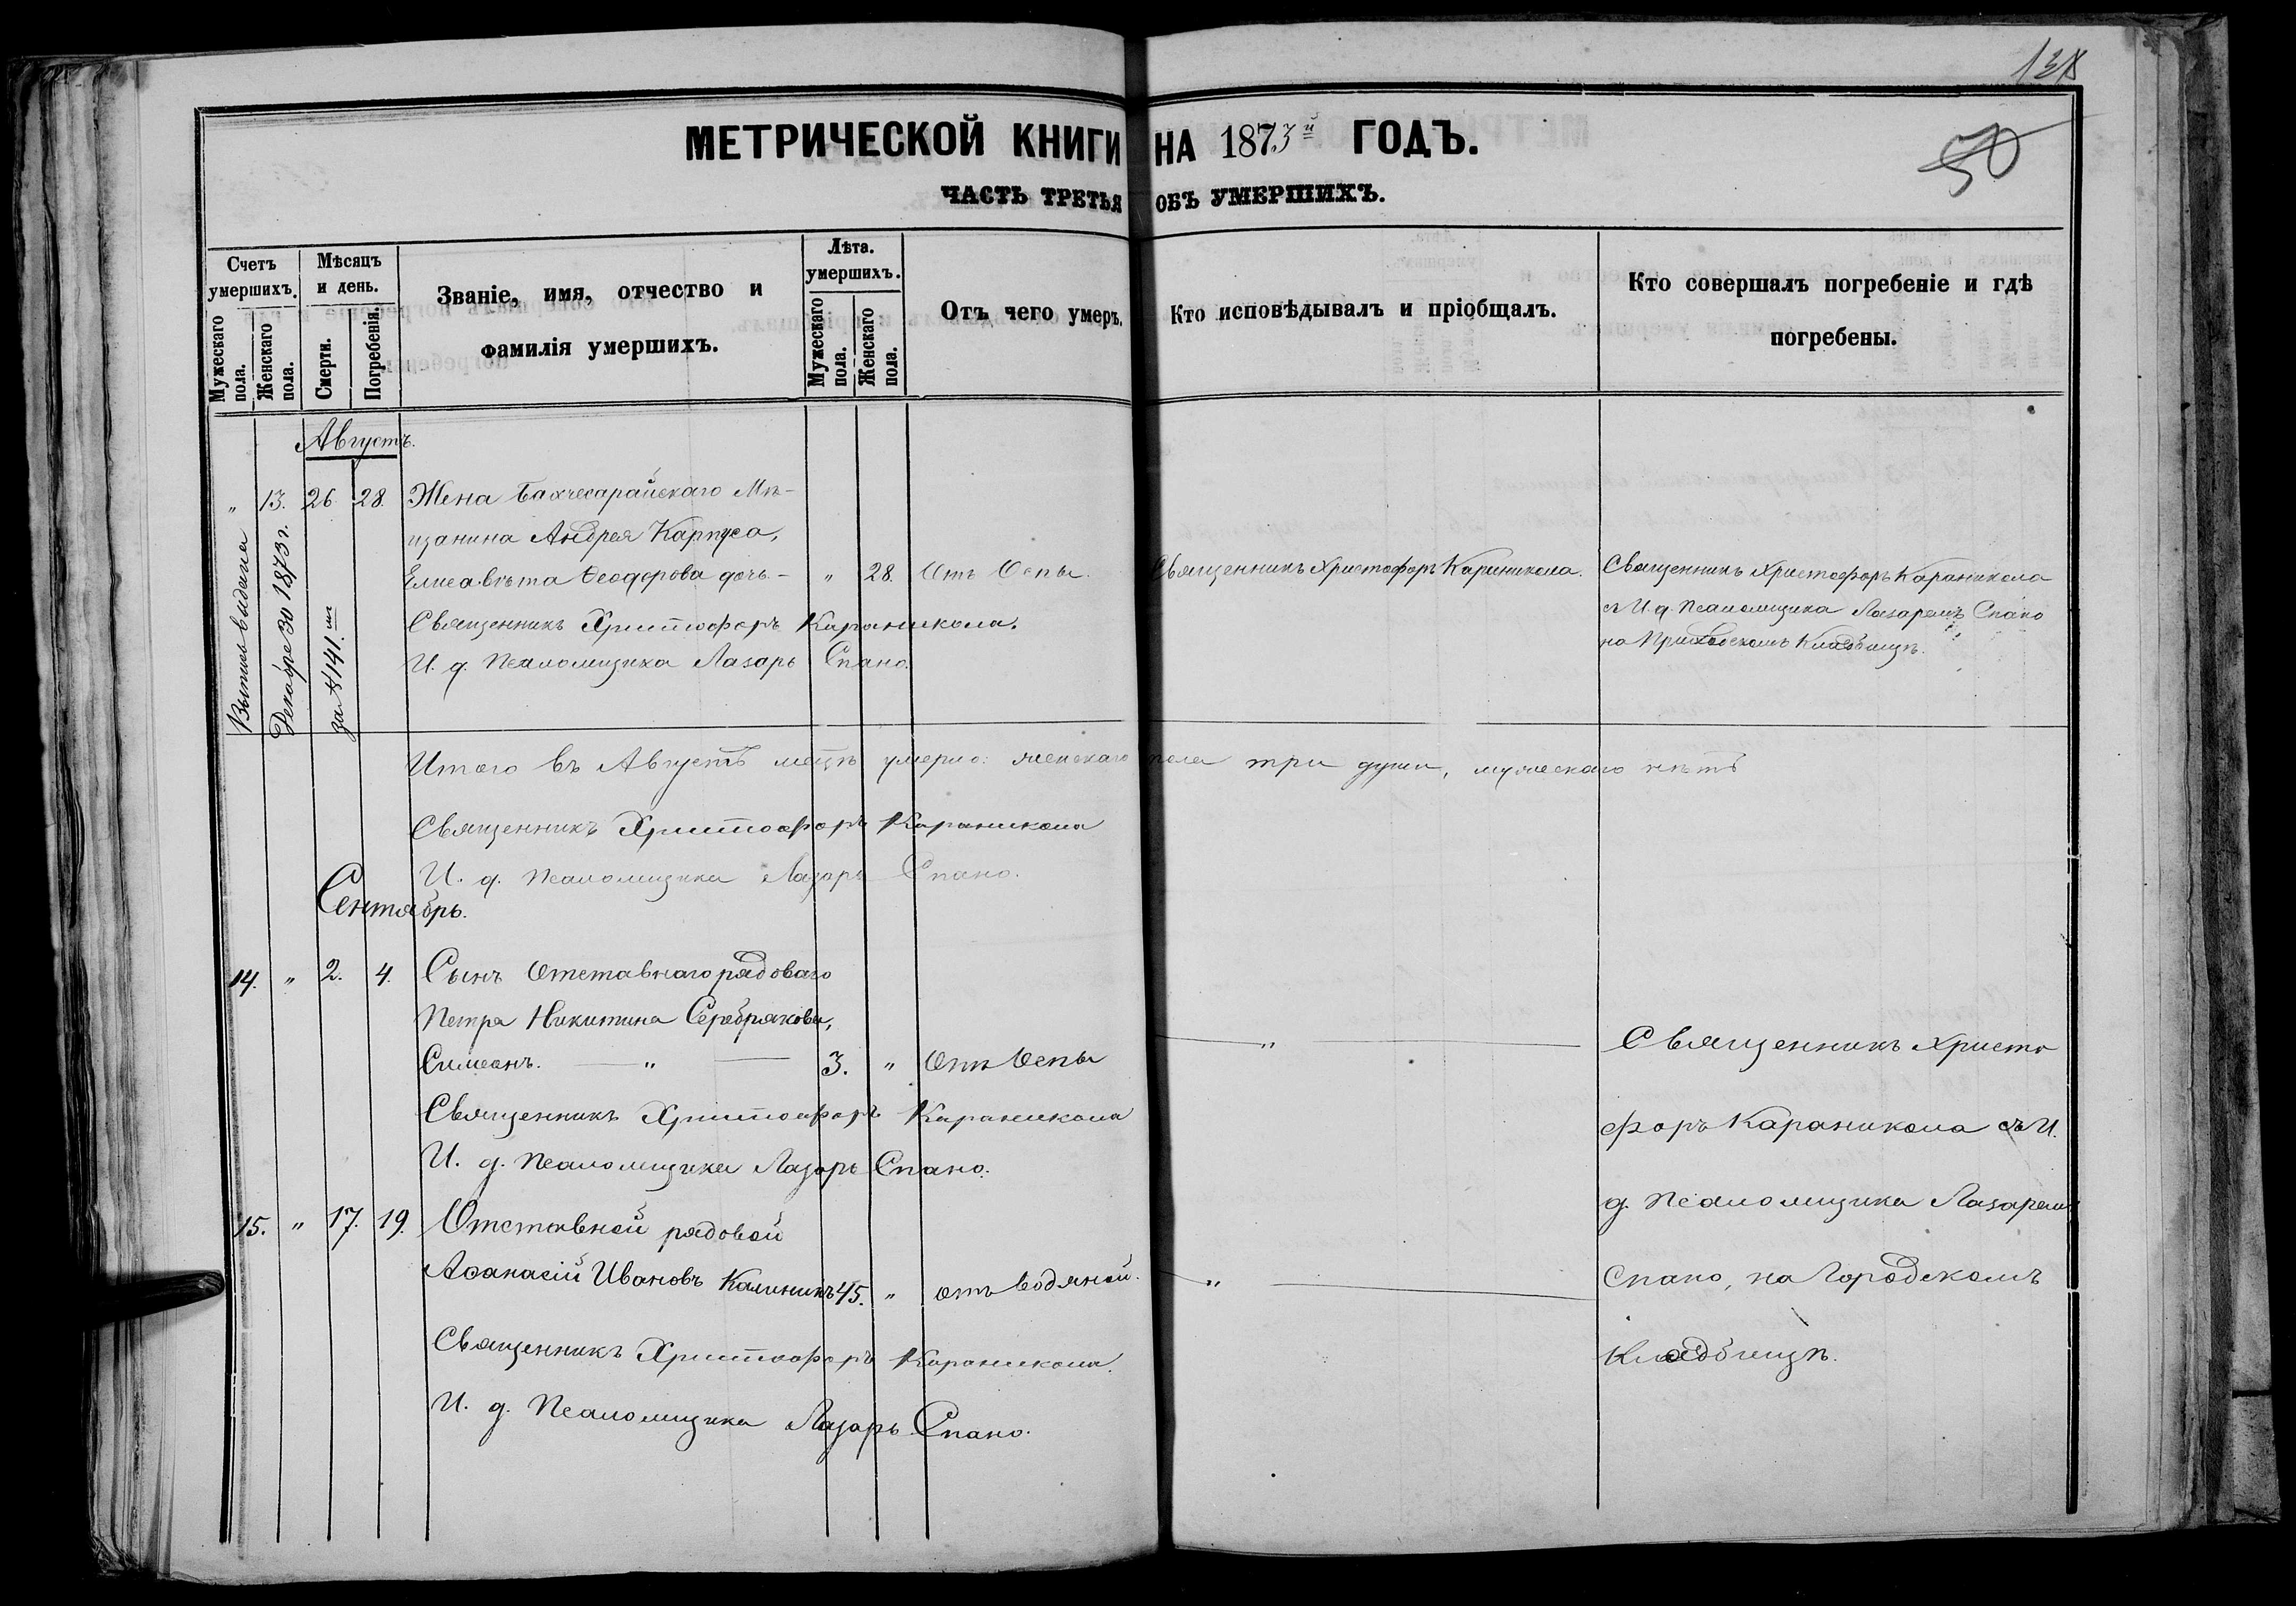 138
50
МЕТРИЧЕСКОЙ КНИГИ НА 1873й ГОДЪ.
ЧАСТЬ ТРЕТЬЯ ОБЪ УМЕРШИХЪ.
Счетъ умершихъ.
Мужескаго пола.
Женскаго пола.
Мѣсяцъ и день.
Смерти.
Погребенія.
Званіе, имя, отчество и
фамилія умершихъ.
Лѣта. умершихъ.
Мужескаго пола.
Женскаго пола.
Отъ чего умеръ.
Кто исповѣдывалъ и пріобщалъ.
Кто совершалъ погребеніе и гдѣ
погребены.
Августъ.
" 13. 26 28. Жена Бахчесарайскаго Мѣ-
щанина Андрея Карпуса,
Елисавѣта Ѳеодорова дочь - " 28. Отъ Оспы. Священникъ Христофоръ Караникола. Священникъ Христофоръ Караникола
съ И. д. Псаломщика Лазаремъ Спано
на Приходскомъ Кладбищѣ.
Священникъ Христофоръ Караникола.
И. д. Псаломщика Лазарь Спано.
Выпись выдана
Декабре 30 1873 г.
за № 141.
Итого въ Августѣ мѣцѣ умерло: женскаго пола три души, мужескаго нѣтъ
Священникъ Христофоръ Караникола
И. д. Псаломщика Лазарь Спано.
Сентябрь.
14. " 2. 4. Сынъ Отставнаго рядоваго
Петра Никитина Серебрякова,
Симеонъ. — " — 3. " Отъ Оспы — " —
Священникъ Христофоръ Караникола
И. д. Псаломщика Лазарь Спано.
Священникъ Христо
форъ Караникола съ И.
д. Псаломщика Лазаремъ
Спано, на Городскомъ
Кладбищѣ.
15. " 17. 19. Отставной рядовой
Аѳанасій Ивановъ Калининъ 45. " отъ водяной. — " —
Священникъ Христофоръ Караникола.
И. д. Псаломщика Лазарь Спано.